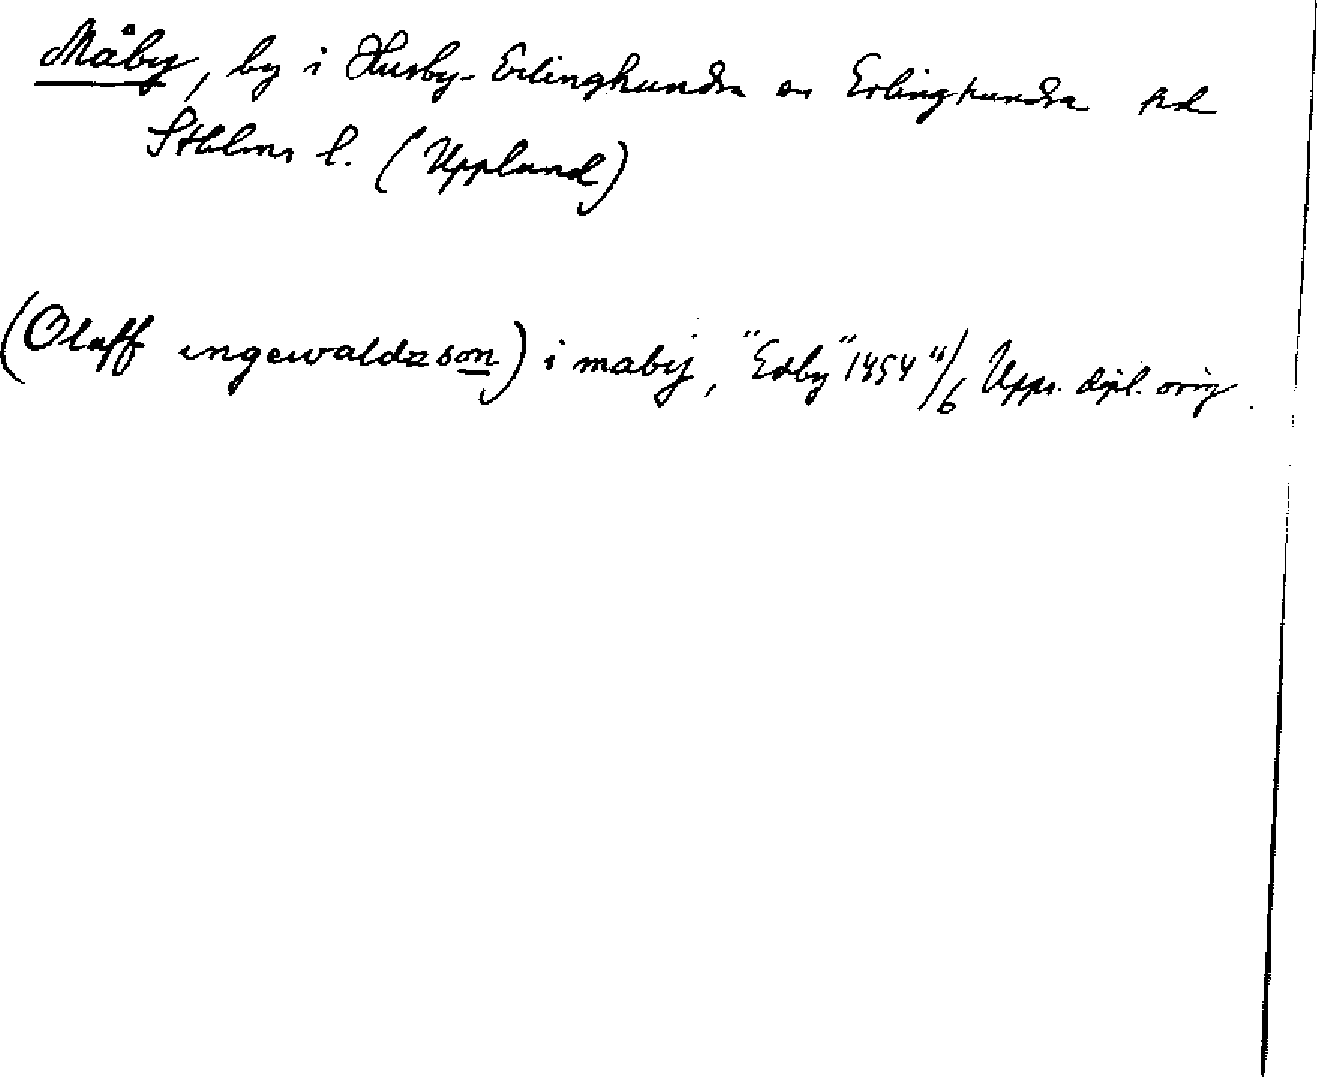 Måby, by i Husby-Erlinghundra sn Erlinghundra hd
Sthlms l. (Uppland)
(Oluff ingewaldzson) i mabij, "Edby" 1454 11/6 Upps. dipl. orig.